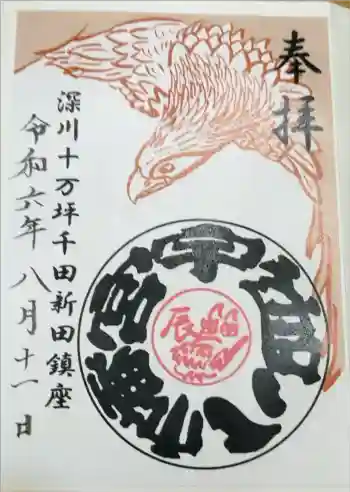 奉拝
深川十万坪千田新田鎮座
令和六年八月十一日
宇迦八幡宮
辰